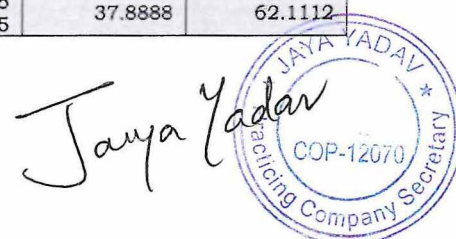 5 37.8888 62.1112
Jaya Yadav
JAYA YADAV *
Practicing Company Secretary
COP-12070